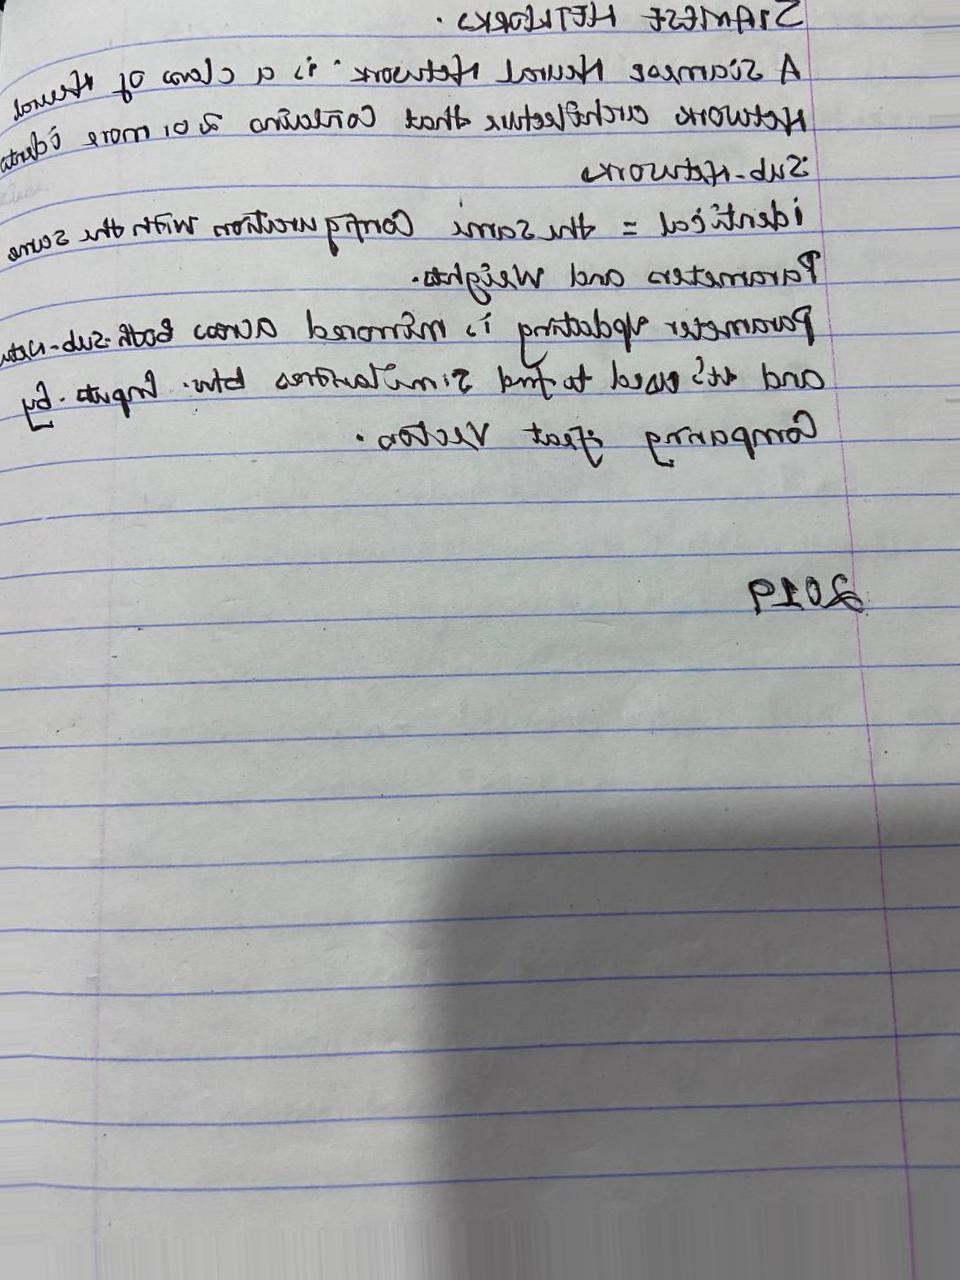 SIAMESE NETWORKS.
A Siamese Neural Network. is a class of Neural
Network architecture that Contains 2 or more identi
Sub-Networks
identical = the Same Configuration with the same
Parameters and Weights.
Parameter Updating is mirrored across both sub-netw
and it's used to find Similarities btw. Inputs. By
Comparing Feat Vectors.
2019